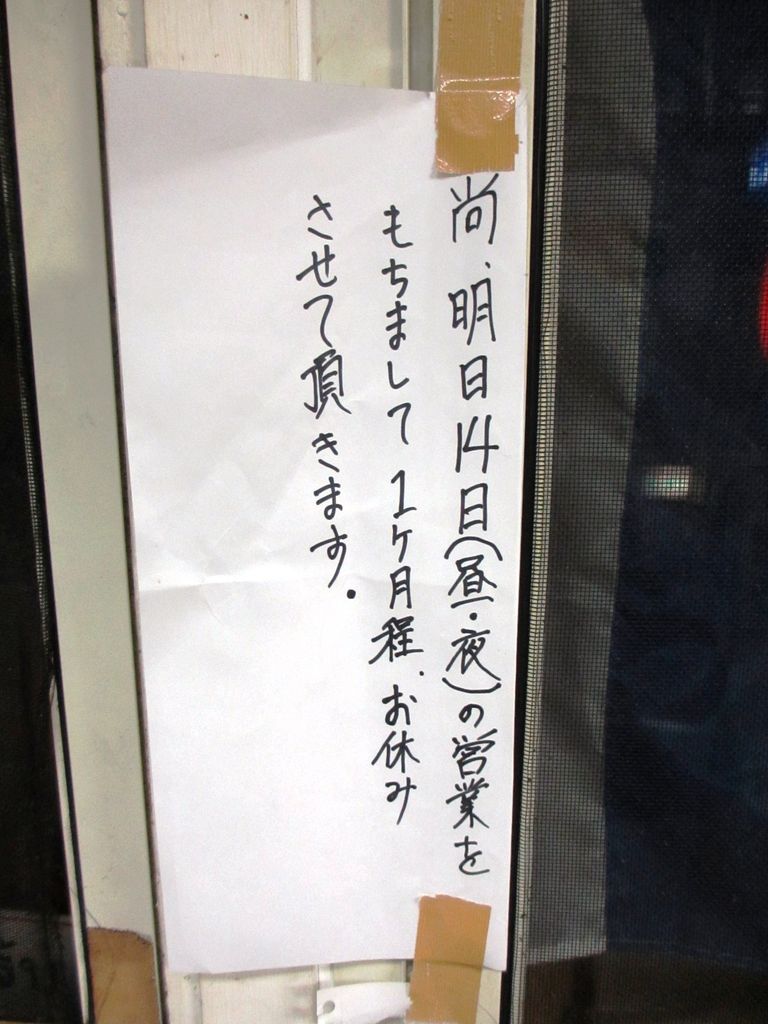 尚、明日14日(昼・夜)の営業を
もちまして1ヶ月程、お休み
させて頂きます.